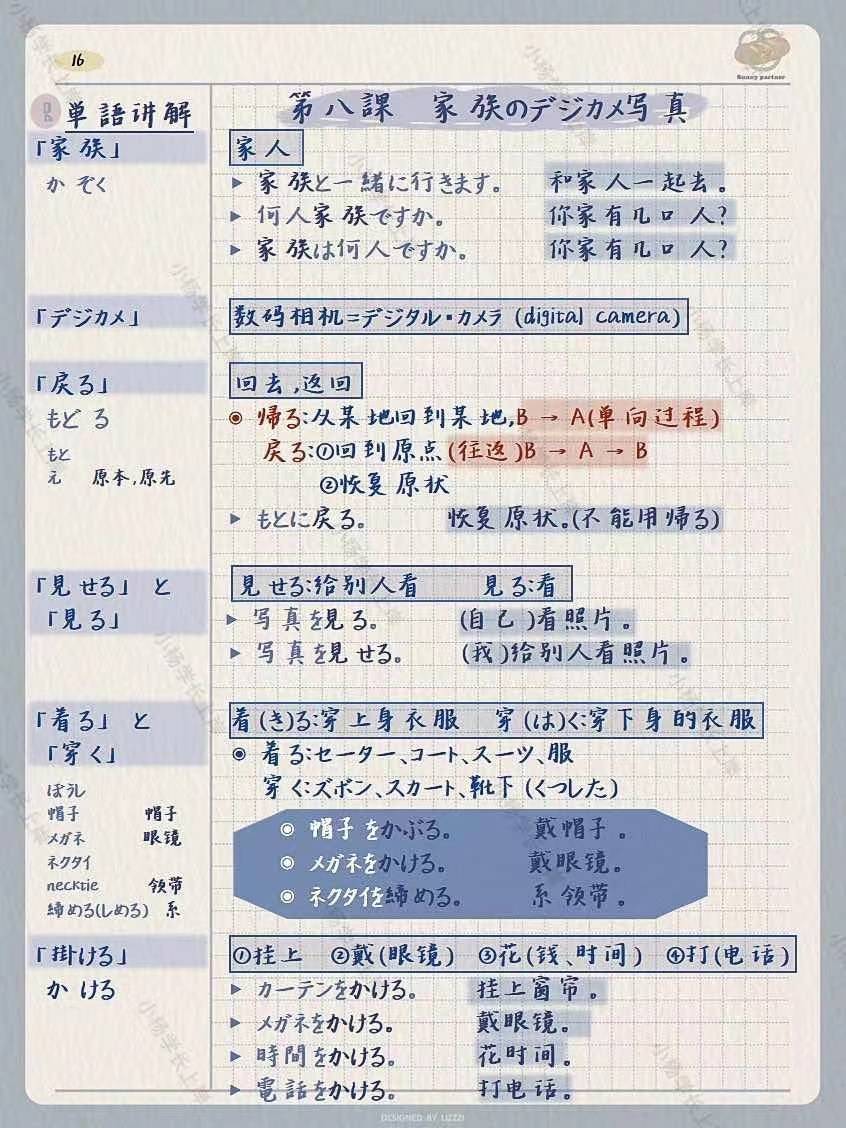 16
Sunny partner
単語讲解
第八課 家族のデジカメ写真
「家族」
かぞく
家人
▶ 家族と一緒に行きます。 和家人一起去。
▶ 何人家族ですか。 你家有几口人?
▶ 家族は何人ですか。 你家有几口人?
「デジカメ」
数码相机=デジタル・カメラ (digital camera)
「戻る」
もどる
もと
元 原本,原先
回去,返回
◉ 帰る:从某地回到某地,B → A(单向过程)
戻る:①回到原点(往返)B → A → B
②恢复原状
▶ もとに戻る。 恢复原状。(不能用帰る)
「見せる」 と
「見る」
見せる:给别人看 見る:看
▶ 写真を見る。 (自己)看照片。
▶ 写真を見せる。 (我)给别人看照片。
「着る」 と
「穿く」
ぼうし
帽子 帽子
メガネ 眼镜
ネクタイ
necktie 领带
締める(しめる) 系
着(き)る:穿上身衣服 穿(は)く:穿下身的衣服
◉ 着る:セーター、コート、スーツ、服
穿く:ズボン、スカート、靴下(くつした)
◉ 帽子をかぶる。 戴帽子。
◉ メガネをかける。 戴眼镜。
◉ ネクタイを締める。 系领带。
「掛ける」
かける
①挂上 ②戴(眼镜) ③花(钱、时间) ④打(电话)
▶ カーテンをかける。 挂上窗帘。
▶ メガネをかける。 戴眼镜。
▶ 時間をかける。 花时间。
▶ 電話をかける。 打电话。
DESIGNED BY LIZZI
小杨学长上岸